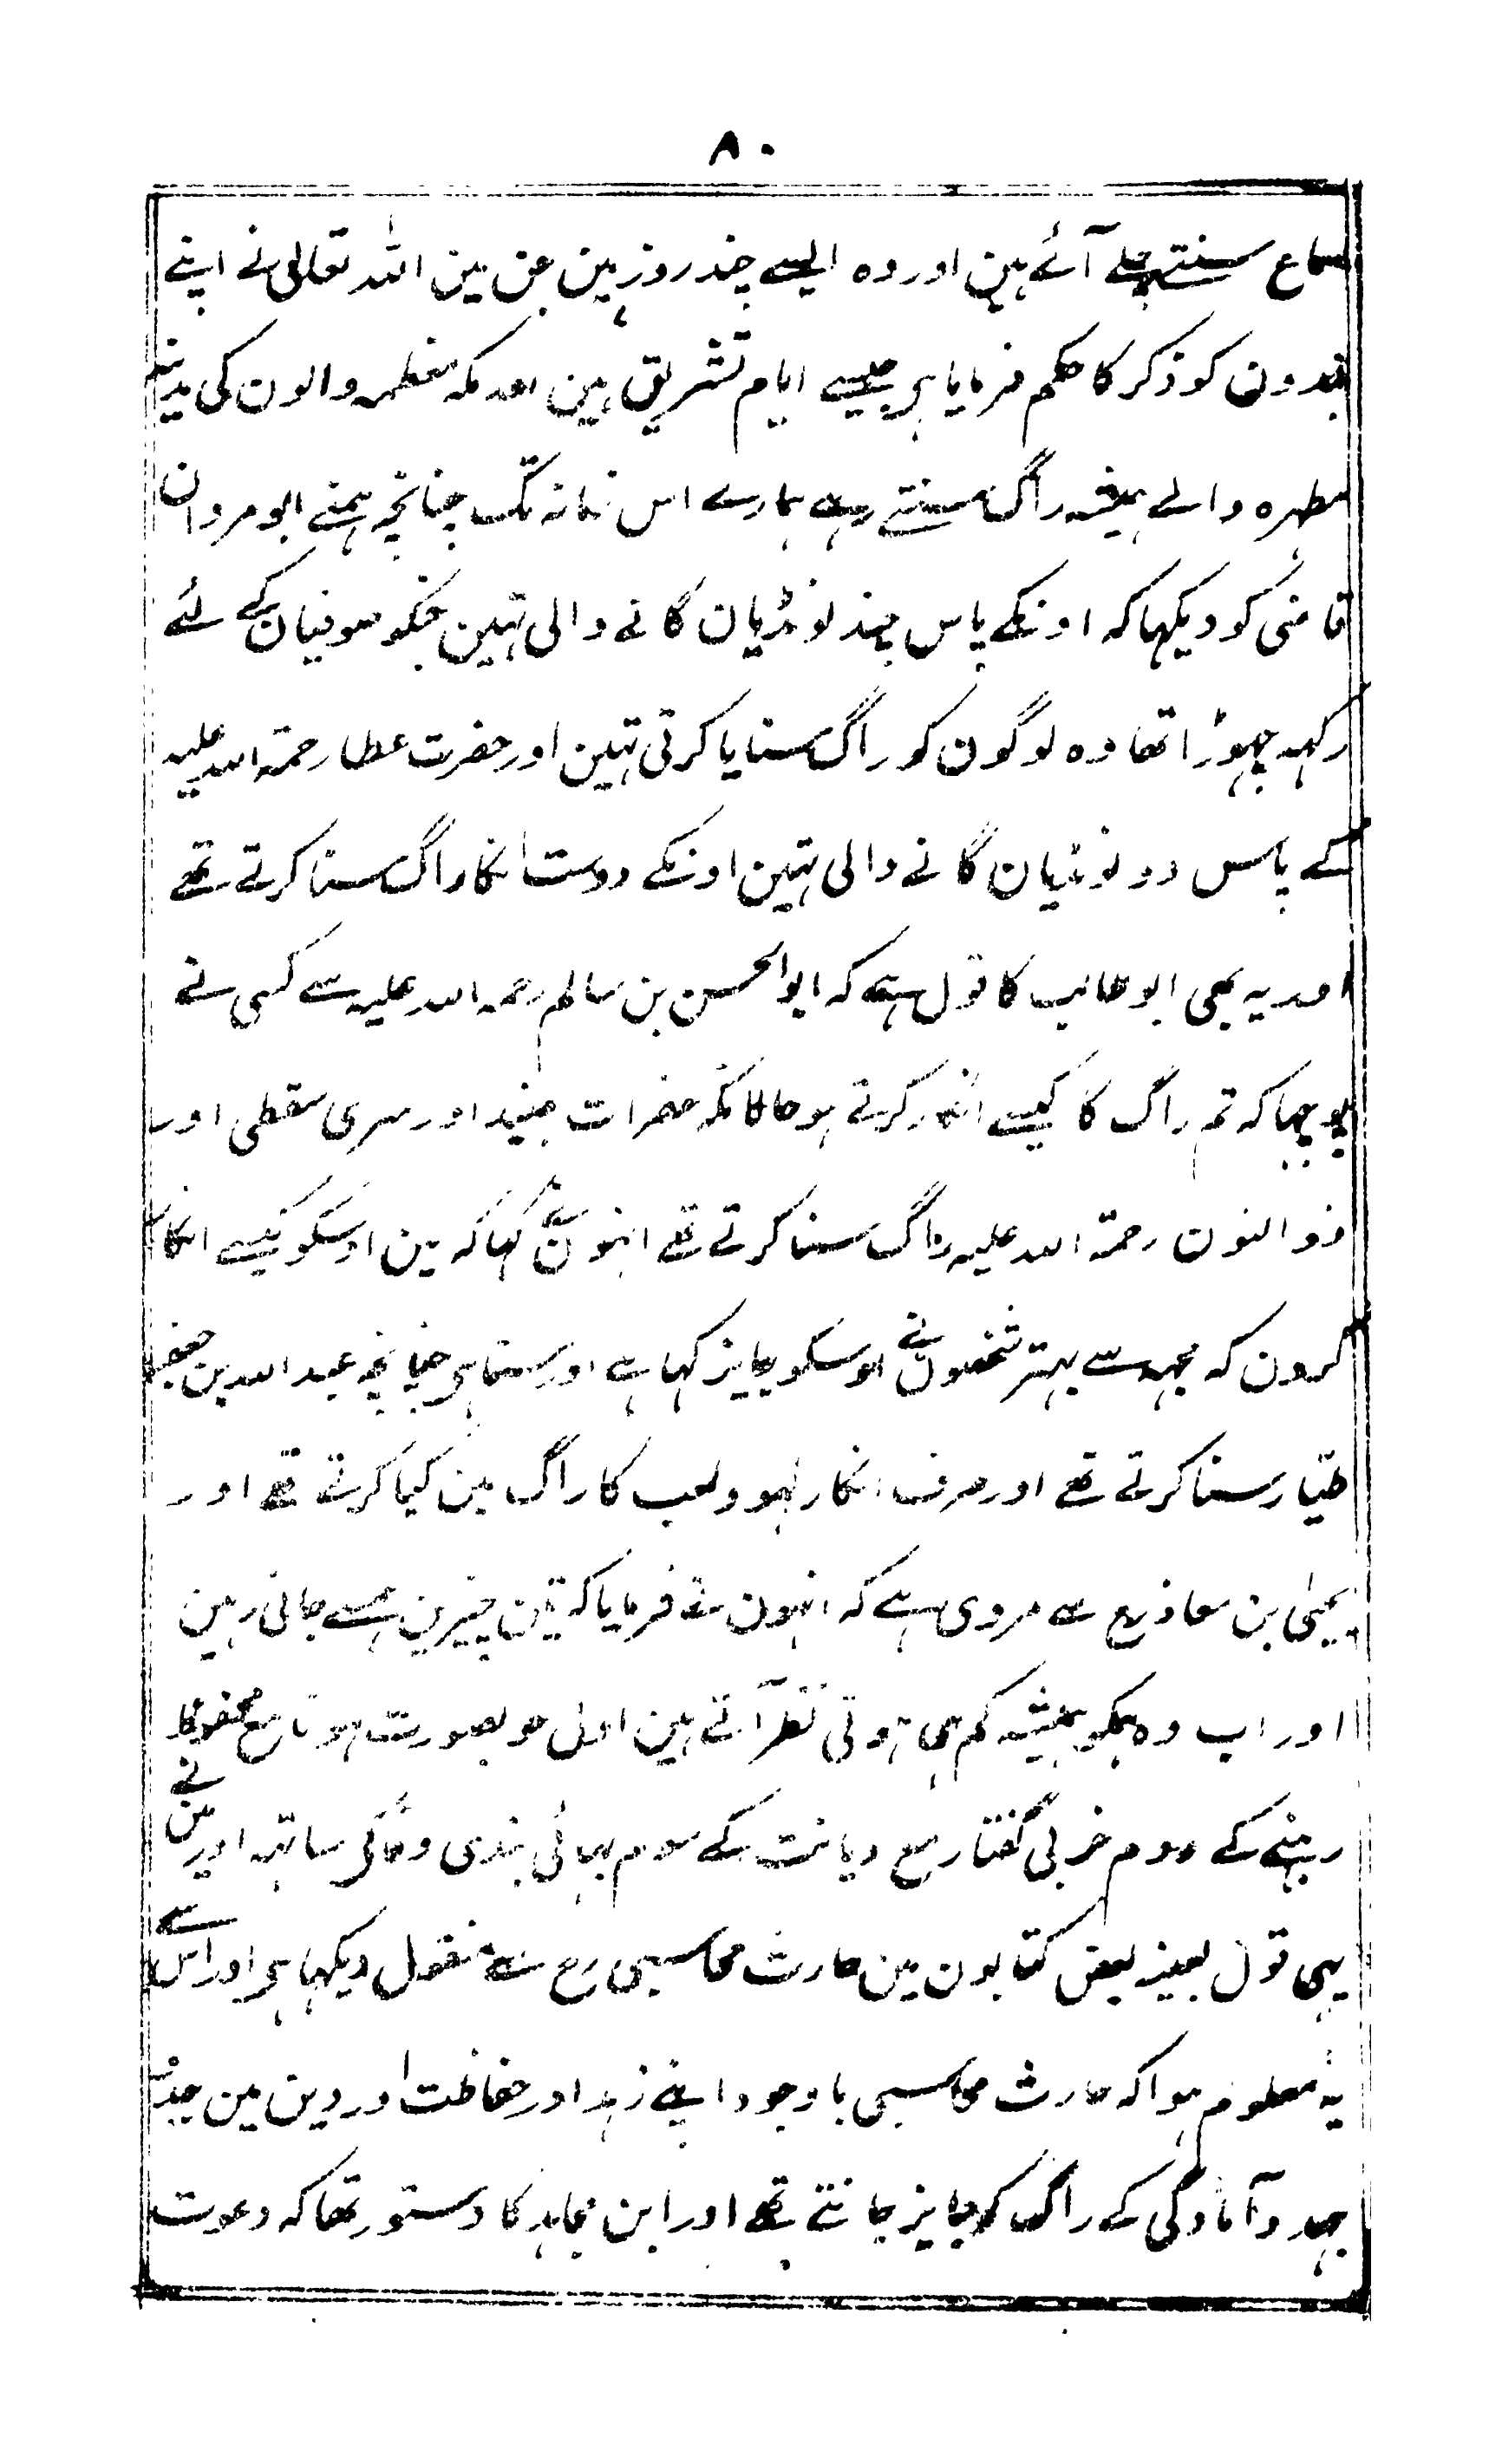 ۸۰
سماع سنتے چلے آئے ہین اور وہ ایسے چند روز ہین جن مین اللہ تعالی نے اپنے
بندون کو ذکر کا حکم فرمایا ہی جیسے ایام تشریق ہین اور مکہ معظمہ والون کی مدینہ
مطہرہ والے ہمیشہ راگ سنتے رہے ہمارے اس زمانہ تک چنانچہ ہمنے ابو مروان
قاضی کو دیکہا کہ اونکے پاس چند لونڈیان گانے والی تہین جنکو صوفیان کے لئے
رکہہ چہوڑا تھا وہ لوگون کو راگ سنایا کرتی تہین اور حضرت عطا رحمتہ اللہ علیہ
کے پاس دو لونڈیان گانے والی تہین اونکے دوست انکا راگ سنا کرتے تھے
اور یہ بھی ابو طالب کا قول ہے کہ ابو الحسن بن سالم رحمہ اللہ علیہ سے کسی نے
پوچہا کہ تم راگ کا کیسے انکار کرتے ہو حالانکہ حضرات جنید اور سری سقطی اور
ذو النون رحمتہ اللہ علیہ راگ سنا کرتے تھے انہون نے کہا کہ مین اوسکو کیسے انکار
کرون کہ مجہہ سے بہتر شخصون نے اوسکو جایز کہا ہے اور سنا ہی چنانچہ عبد اللہ بن جعفر
طیار سنا کرتے تھے اور صرف انکار لہو و لعب کا راگ مین کیا کرتے تھے اور
یحیٰی بن معاذ رح سے مروی ہے کہ انہون نے فرمایا کہ تین چیزین ہمسے جاتی رہین
اور اب وہ ہمکو ہمیشہ کم ہی ہوتی نظر آتے ہین اول خوبصورت ہونا مع محفوظ
رہنے کے دوم خوبی گفتار مع دیانت کے سوم بہائی بندی وفا کی ساتہہ اور مین نے
یہی قول بعینہ بعض کتابون مین حارث محاسبی رح سے منقول دیکہا ہی اور اس سے
یہ معلوم ہوا کہ حارث محاسبی باوجود اپنے زہد اور حفاظت اور دین مین جد و
جہد و آمادگی کے راگ کو جایز جانتے تھے اور ابن مجاہد کا دستور تھا کہ دعوت